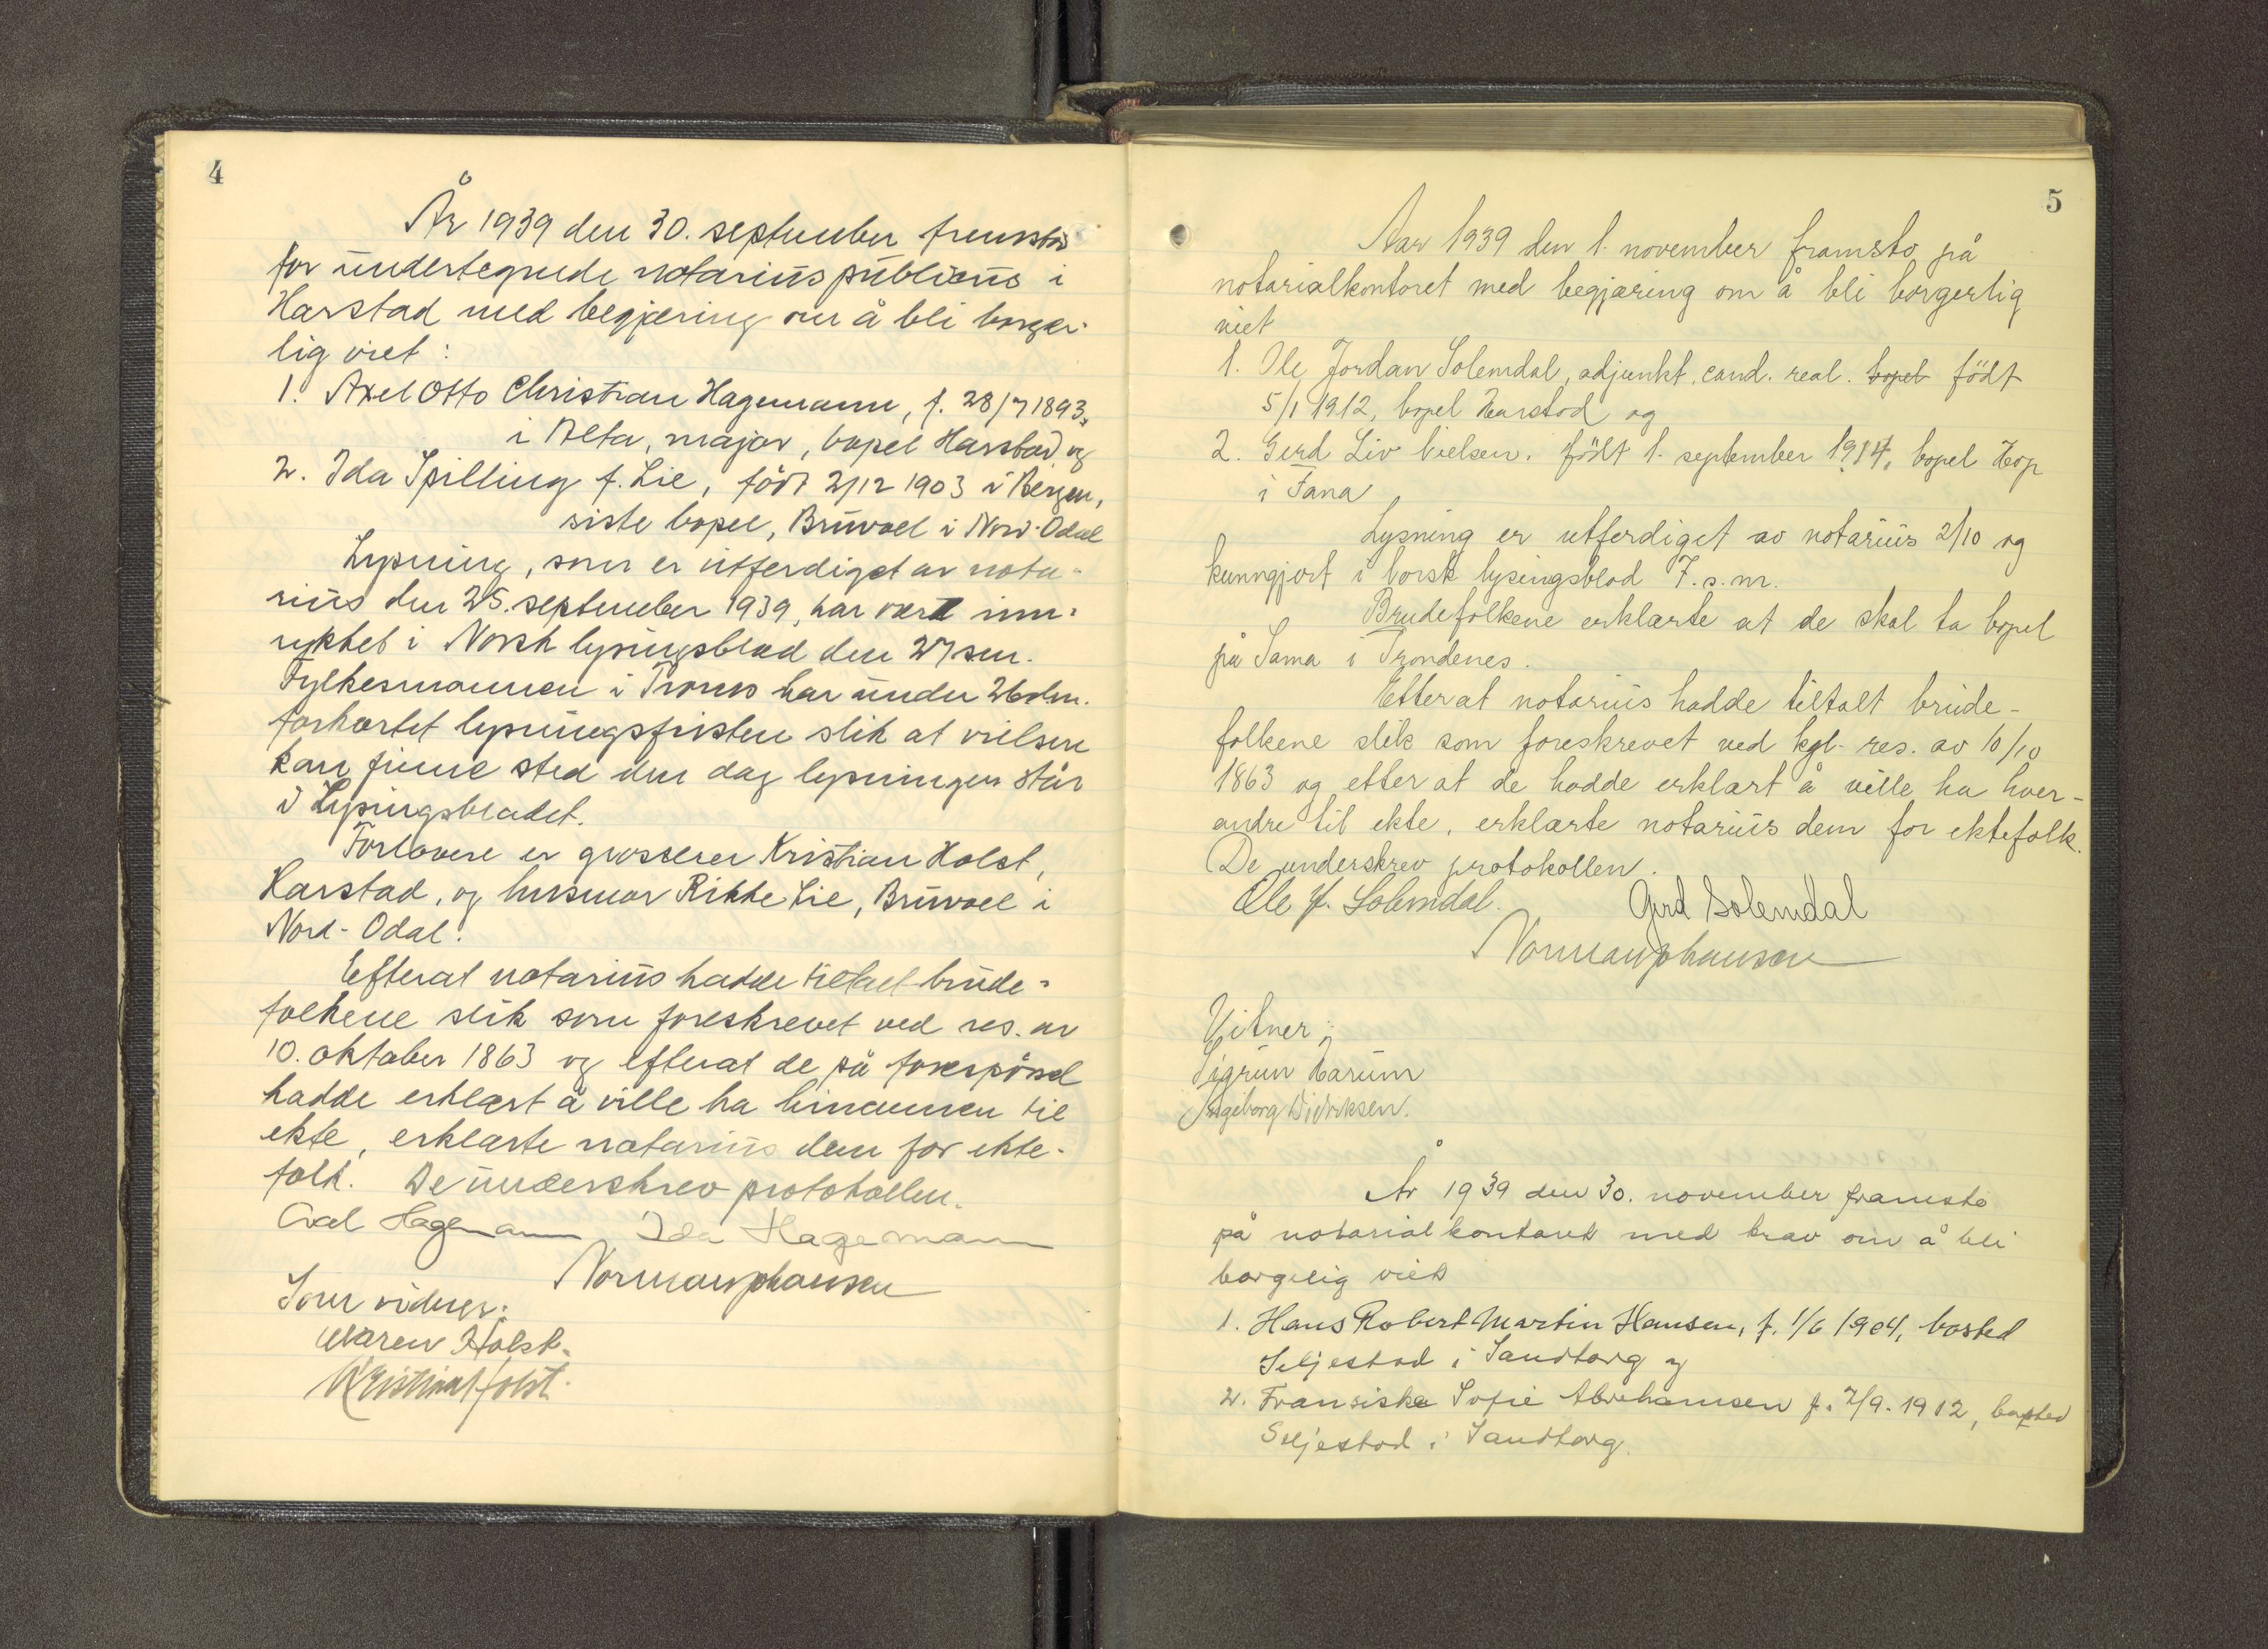 4
År 1939 den 30. september fremstod
for undertegnede notarius publicus i
Harstad med begjæring om å bli borger-
lig viet:
1. Axel Otto Christian Hagemann, f. 28/7 1893.
i Alta, major, bopel Harstad og
2. Ida Spilling f. Lie, födt 2/12 1903 i Bergen,
siste bopel, Bruvoll i Nord-Odal
Lysning, som er utferdiget av nota-
rius den 25. september 1939, har vært inn-
rykket i Norsk lysingsblad den 27 sm.
Fylkesmannen i Troms har under 26 dm.
forkortet lysningsfristen slik at vielsen
kan finne sted den dag lysningen står
i Lysingsbladet.
Forlovere er grosserer Kristian Holst,
Harstad, og husmor Rikke Lie, Bruvoll i
Nord-Odal.
Efterat notarius hadde tiltalt brude-
folkene slik som foreskrevet ved res. av
10. oktober 1863 og efterat de på forespörsel
hadde erklært å ville ha hinannen til
ekte, erklærte notarius dem for ekte-
folk. De underskrev protokollen.
Axel Hagemann Ida Hagemann
Normann Johansen
Som vidner:
Maren Holst.
Kristian Holst.
5
Aar 1939 den 1. november framsto på
notarialkontoret med begjæring om å bli borgerlig
viet
1. Ole Jordan Solemdal, adjunkt, cand. real. bopel födt
5/1 1912, bopel Harstad og
2. Gerd Liv Nielsen. födt 1. september 1914, bopel Hop
i Fana
Lysning er utferdiget av notarius 2/10 og
kunngjort i Norsk lysingsblad 7. s.m.
Brudefolkene erklærte at de skal ta bopel
på Sama i Trondenes.
Etterat notarius hadde tiltalt brude-
folkene slik som foreskrevet ved kgl. res. av 10/10
1863 og etter at de hadde erklært å ville ha hver-
andre til ekte, erklærte notarius dem for ektefolk.
De underskrev protokollen.
Ole J. Solemdal. Gerd Solemdal
Normann Johansen
Vitner:
Sigrun Harum
Ingeborg Didriksen.
År 1939 den 30. november framsto
på notarialkontoret med krav om å bli
borgelig viet
1. Hans Robert Martin Hansen, f. 1/6 1904, bosted
Seljestad i Sandtorg og
2. Fransiska Sofie Abrahamsen f. 7/9. 1912, bosted
Seljestad i Sandtorg.